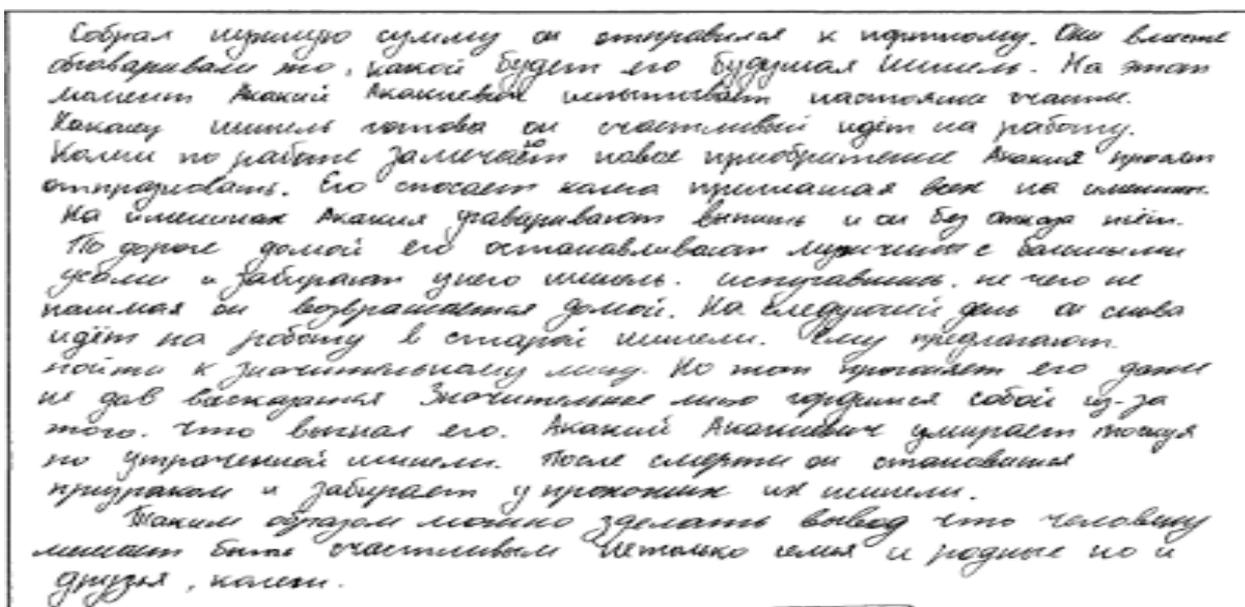 Собрал нужную сумму он отправился к портному. Они вместе
обговаривали то, какой будет его будущая шинель. На этот
момент Акакий Акакиевич испытывает настоящие счастье.
Накону шинель готова он счастливый идёт на работу.
Колеги по работе замечают новое приобритение Акакия просят
отпраздновать. Его спасает колега приглашая всех на именины.
На именинах Акакия угаваривают выпить и он без отказа пьёт.
По дороге домой его останавливают мужчины с большими
усами и забирают унего шинель. испугавшись, не чего не
понимая он возвращается домой. На следующий день он снова
идёт на работу в старой шинели. Ему предлагают
пойти к значительному лицу. Но тот прогоняет его даже
не дав васказатся Значительное лицо гордится собой из-за
того. что выгнал его. Акакий Акакиевич умирает тоскуя
по утраченной шинели. После смерти он становится
призраком и забирает у прохожих их шинели.
Таким образом можно зделать вывод что человеку
мешает быть счастливым нетолько семья и родные но и
друзья, колеги.